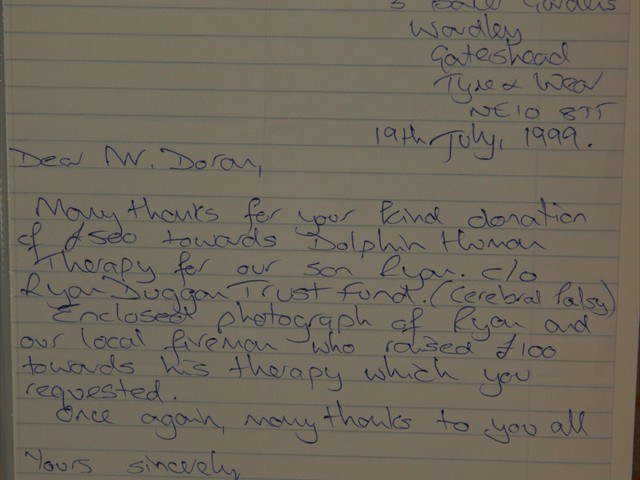 Gardens
Wardley
Gateshead
Tyne & Wear
NE10 8TT
19th July, 1999.
Dear Mr. Doran,
Many thanks for your kind donation
of £500 towards Dolphin Human
Therapy for our son Ryan. c/o
Ryan Duggan Trust Fund. (Cerebral Palsy)
Enclosed photograph of Ryan and
our local fireman who raised £100
towards his therapy which you
requested.
Once again, many thanks to you all
Yours sincerely